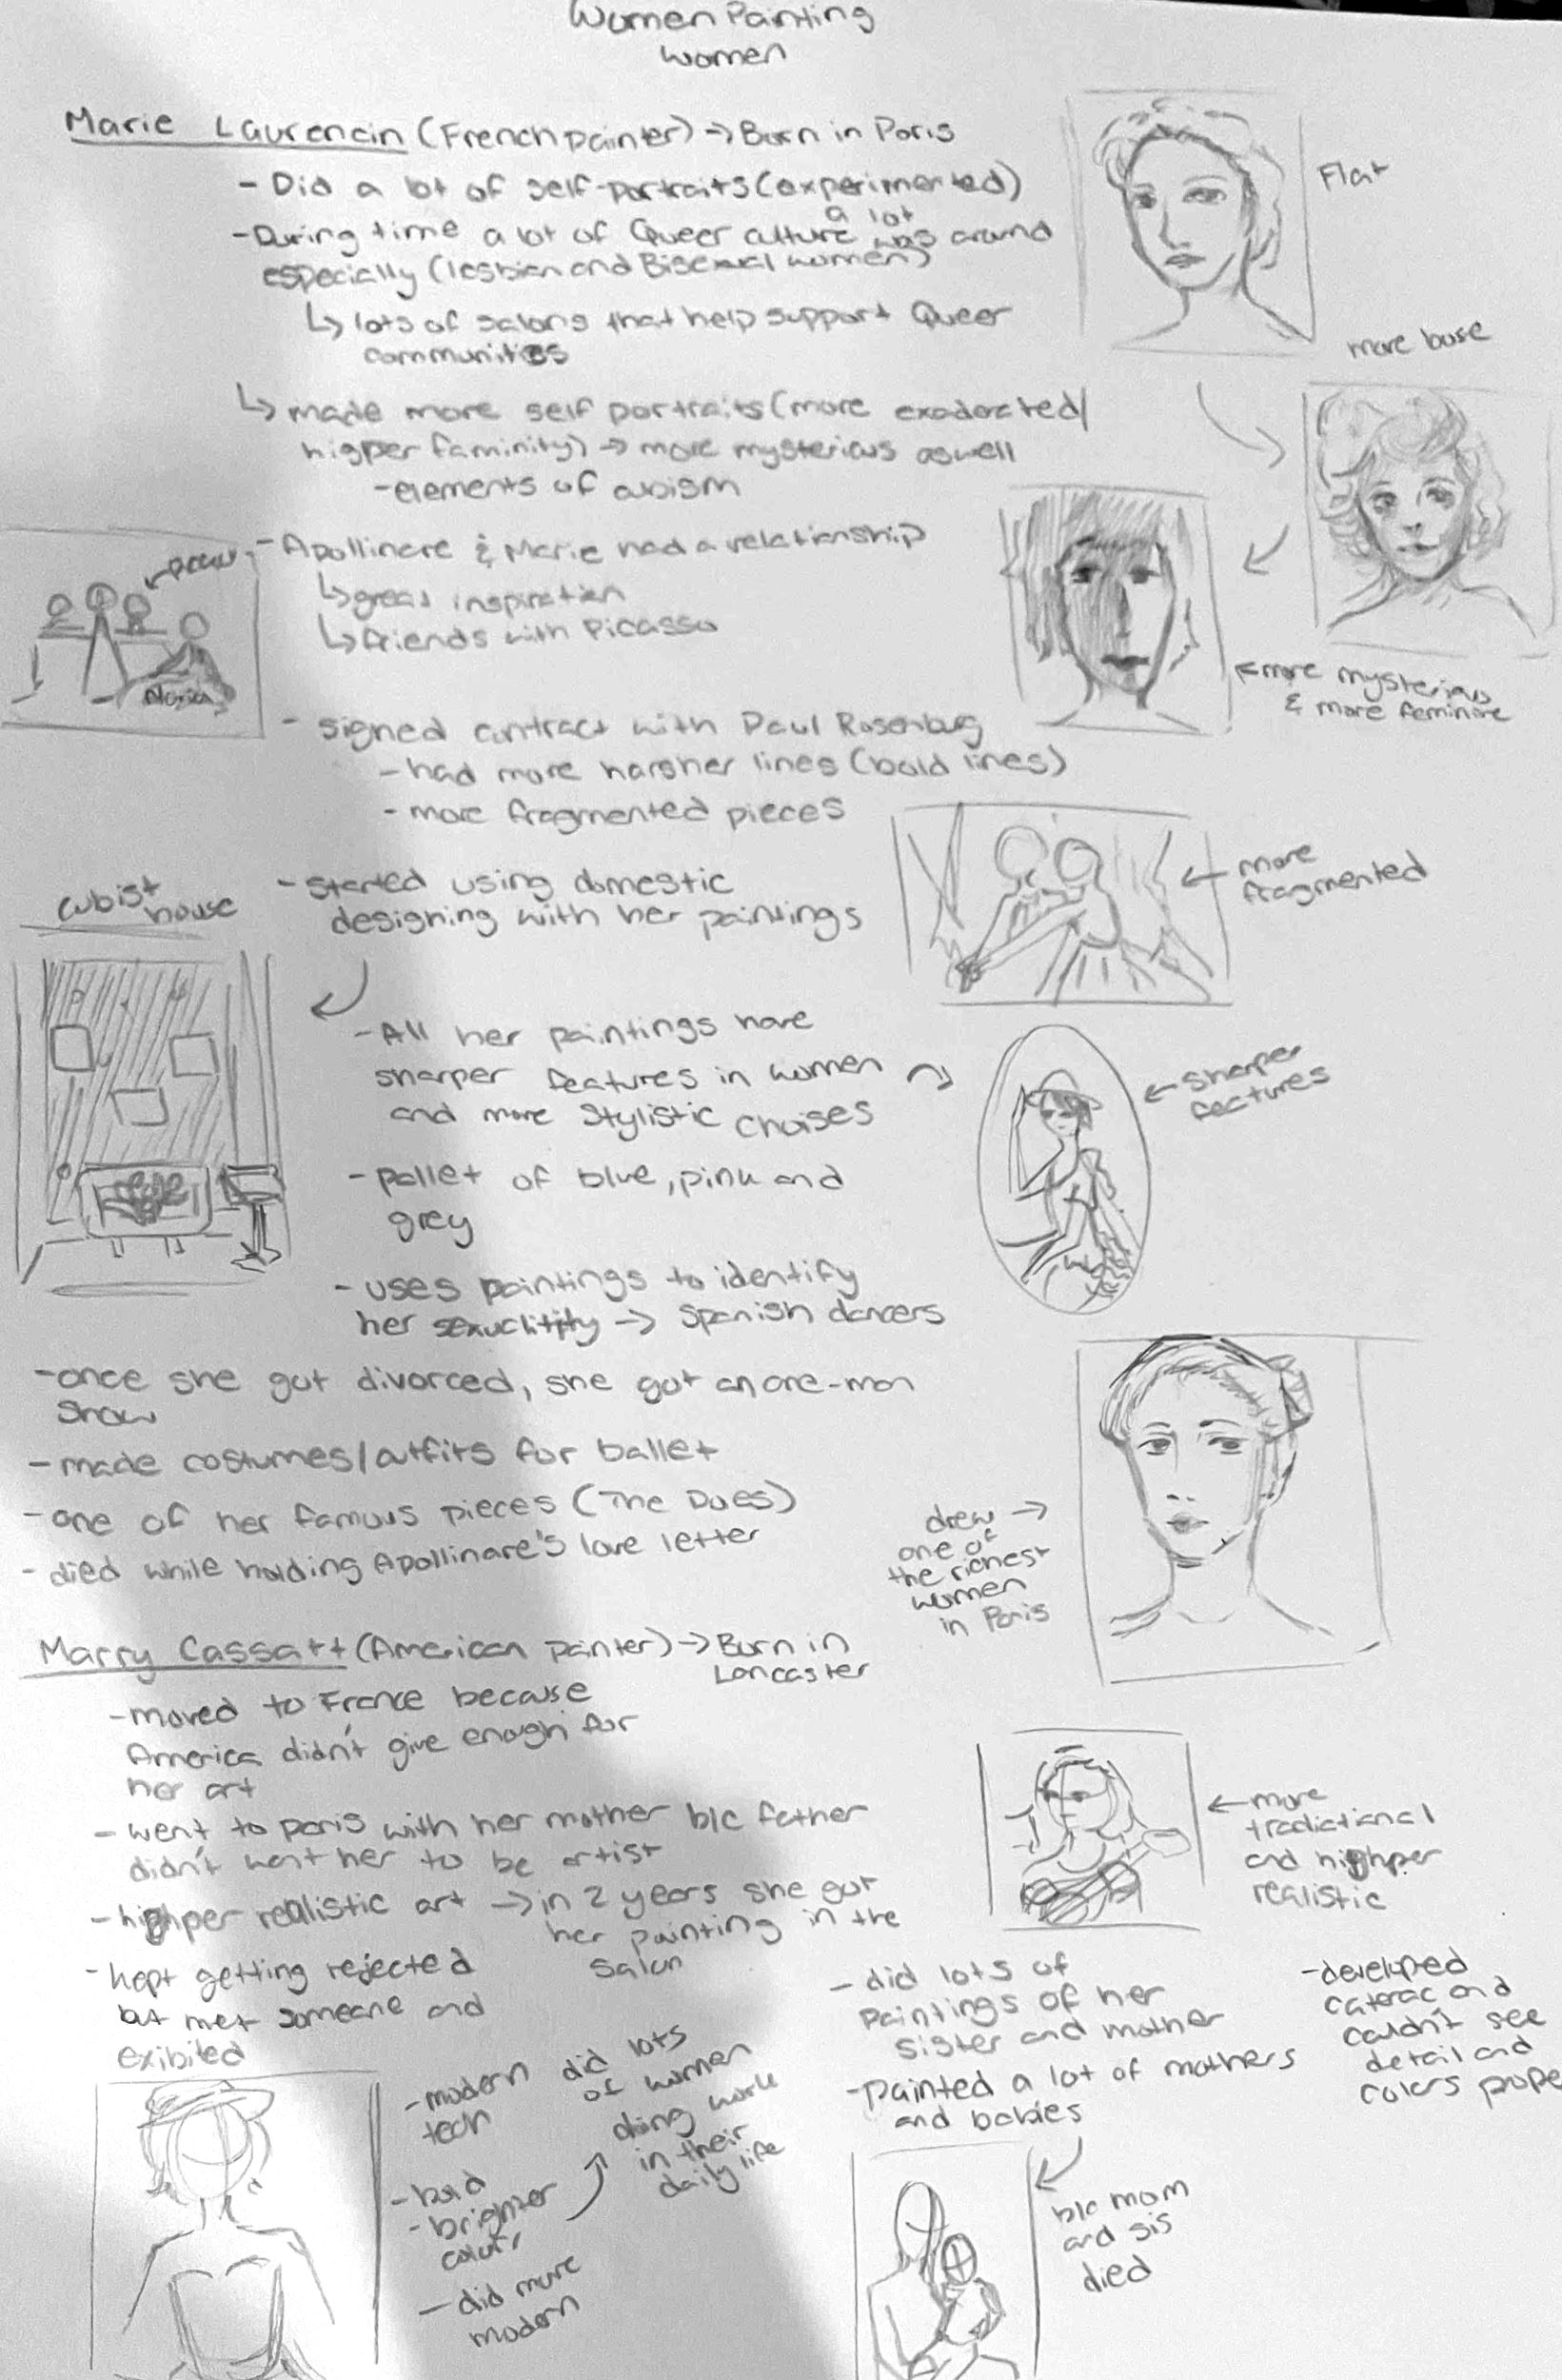 Women Painting
Women
Marie Laurencin (French painter) → Born in Paris
- Did a lot of self-portraits (experimented)
- During time a lot of Queer culture a lot was around
especially (lesbian and Bisexual women)
↳ lots of salons that help support Queer
communities
↳ made more self portraits (more exaderated/
higper faminity) → more mysterious aswell
- elements of cubism
Flat
more base
← more mysterious
& more feminine
- Apollinare & Marie had a relationship
↳ great inspiration
↳ friends with Picasso
Maria
- signed contract with Paul Rosenbug
- had more harsher lines (bold lines)
- more fragmented pieces
← more
fragmented
cubist
house
- started using domestic
designing with her paintings
- All her paintings have
sharper features in women
and more stylistic choises
← sharper
features
- pallet of blue, pink and
grey
- uses paintings to identify
her sexuclitity → Spanish dancers
- once she got divorced, she got an one-man
show
- made costumes/outfits for ballet
- one of her famous pieces (The Does)
- died while holding Apollinare's love letter
drew →
one of
the richest
women
in Paris
Marry Cassatt (American painter) → Born in
Lancaster
- moved to France because
America didn't give enough for
her art
- went to paris with her mother b/c father
didn't want her to be artist
- highper realistic art → in 2 years she got
her painting in the
salon
← more
tradictional
and highper
realistic
- kept getting rejected
but met someone and
exibited
- modern
tech
did lots
of women
doing work
in their
daily life
- bold
- brighter
colors
- did more
modern
- did lots of
paintings of her
sister and mother
- painted a lot of mothers
and babies
b/c mom
and sis
died
- developed
caterac and
couldn't see
detail and
colors prope